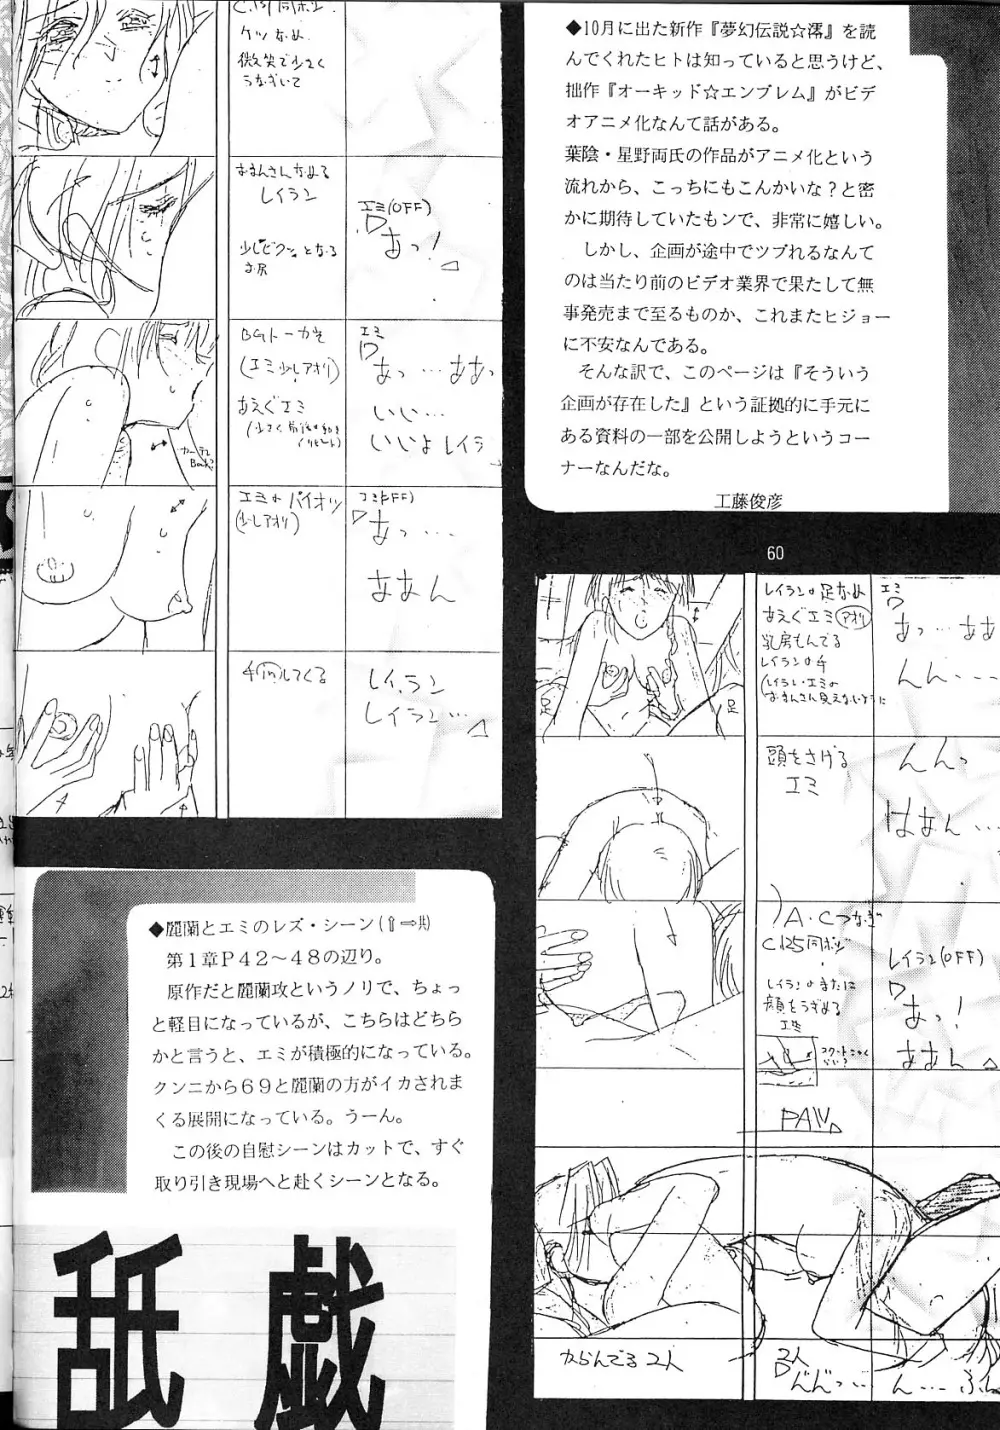 ◆10月に出た新作『夢幻伝説☆澪』を読
んでくれたヒトは知っていると思うけど、
拙作『オーキッド☆エンブレム』がビデ
オアニメ化なんて話がある。
葉陰・星野両氏の作品がアニメ化という
流れから、こっちにもこんかいな？と密
かに期待していたもンで、非常に嬉しい。
しかし、企画が途中でツブれるなんて
のは当たり前のビデオ業界で果たして無
事発売まで至るものか、これまたヒジョー
に不安なんである。
そんな訳で、このページは『そういう
企画が存在した』という証拠的に手元に
ある資料の一部を公開しようというコー
ナーなんだな。
工藤俊彦
60
微笑で少さく
うなずいて
おまんさんなめる
レイラン
少しピクッとなる
お尻
エミ(OFF)
あっ！
(エミ少しアオリ)
あえぐエミ
エミ
あっ…ああっ
いい…
いいよレイラン
エミのパイオツ
(少しアオリ)
エミ(OFF)
あっ…
ああん
手inしてくる
レイラン
レイラン…
レイランの足なめ
あえぐエミ(アオリ)
乳房もんでる
レイランの手
足
足
エミ
あっ…ああ
んん…
頭をさげる
エミ
んんっ
はあん…
A・Cつなぎ
C125同ポジ
レイランのまたに
顔をうずめる
エミ
レイラン(OFF)
あっ！
ああん
PAN
からんでる2人
2人
んんっ…
ん…
◆麗蘭とエミのレズ・シーン(⇧⇨共)
第１章Ｐ４２〜４８の辺り。
原作だと麗蘭攻というノリで、ちょっ
と軽目になっているが、こちらはどちら
かと言うと、エミが積極的になっている。
クンニから６９と麗蘭の方がイカされま
くる展開になっている。うーん。
この後の自慰シーンはカットで、すぐ
取り引き現場へと赴くシーンとなる。
舐戯